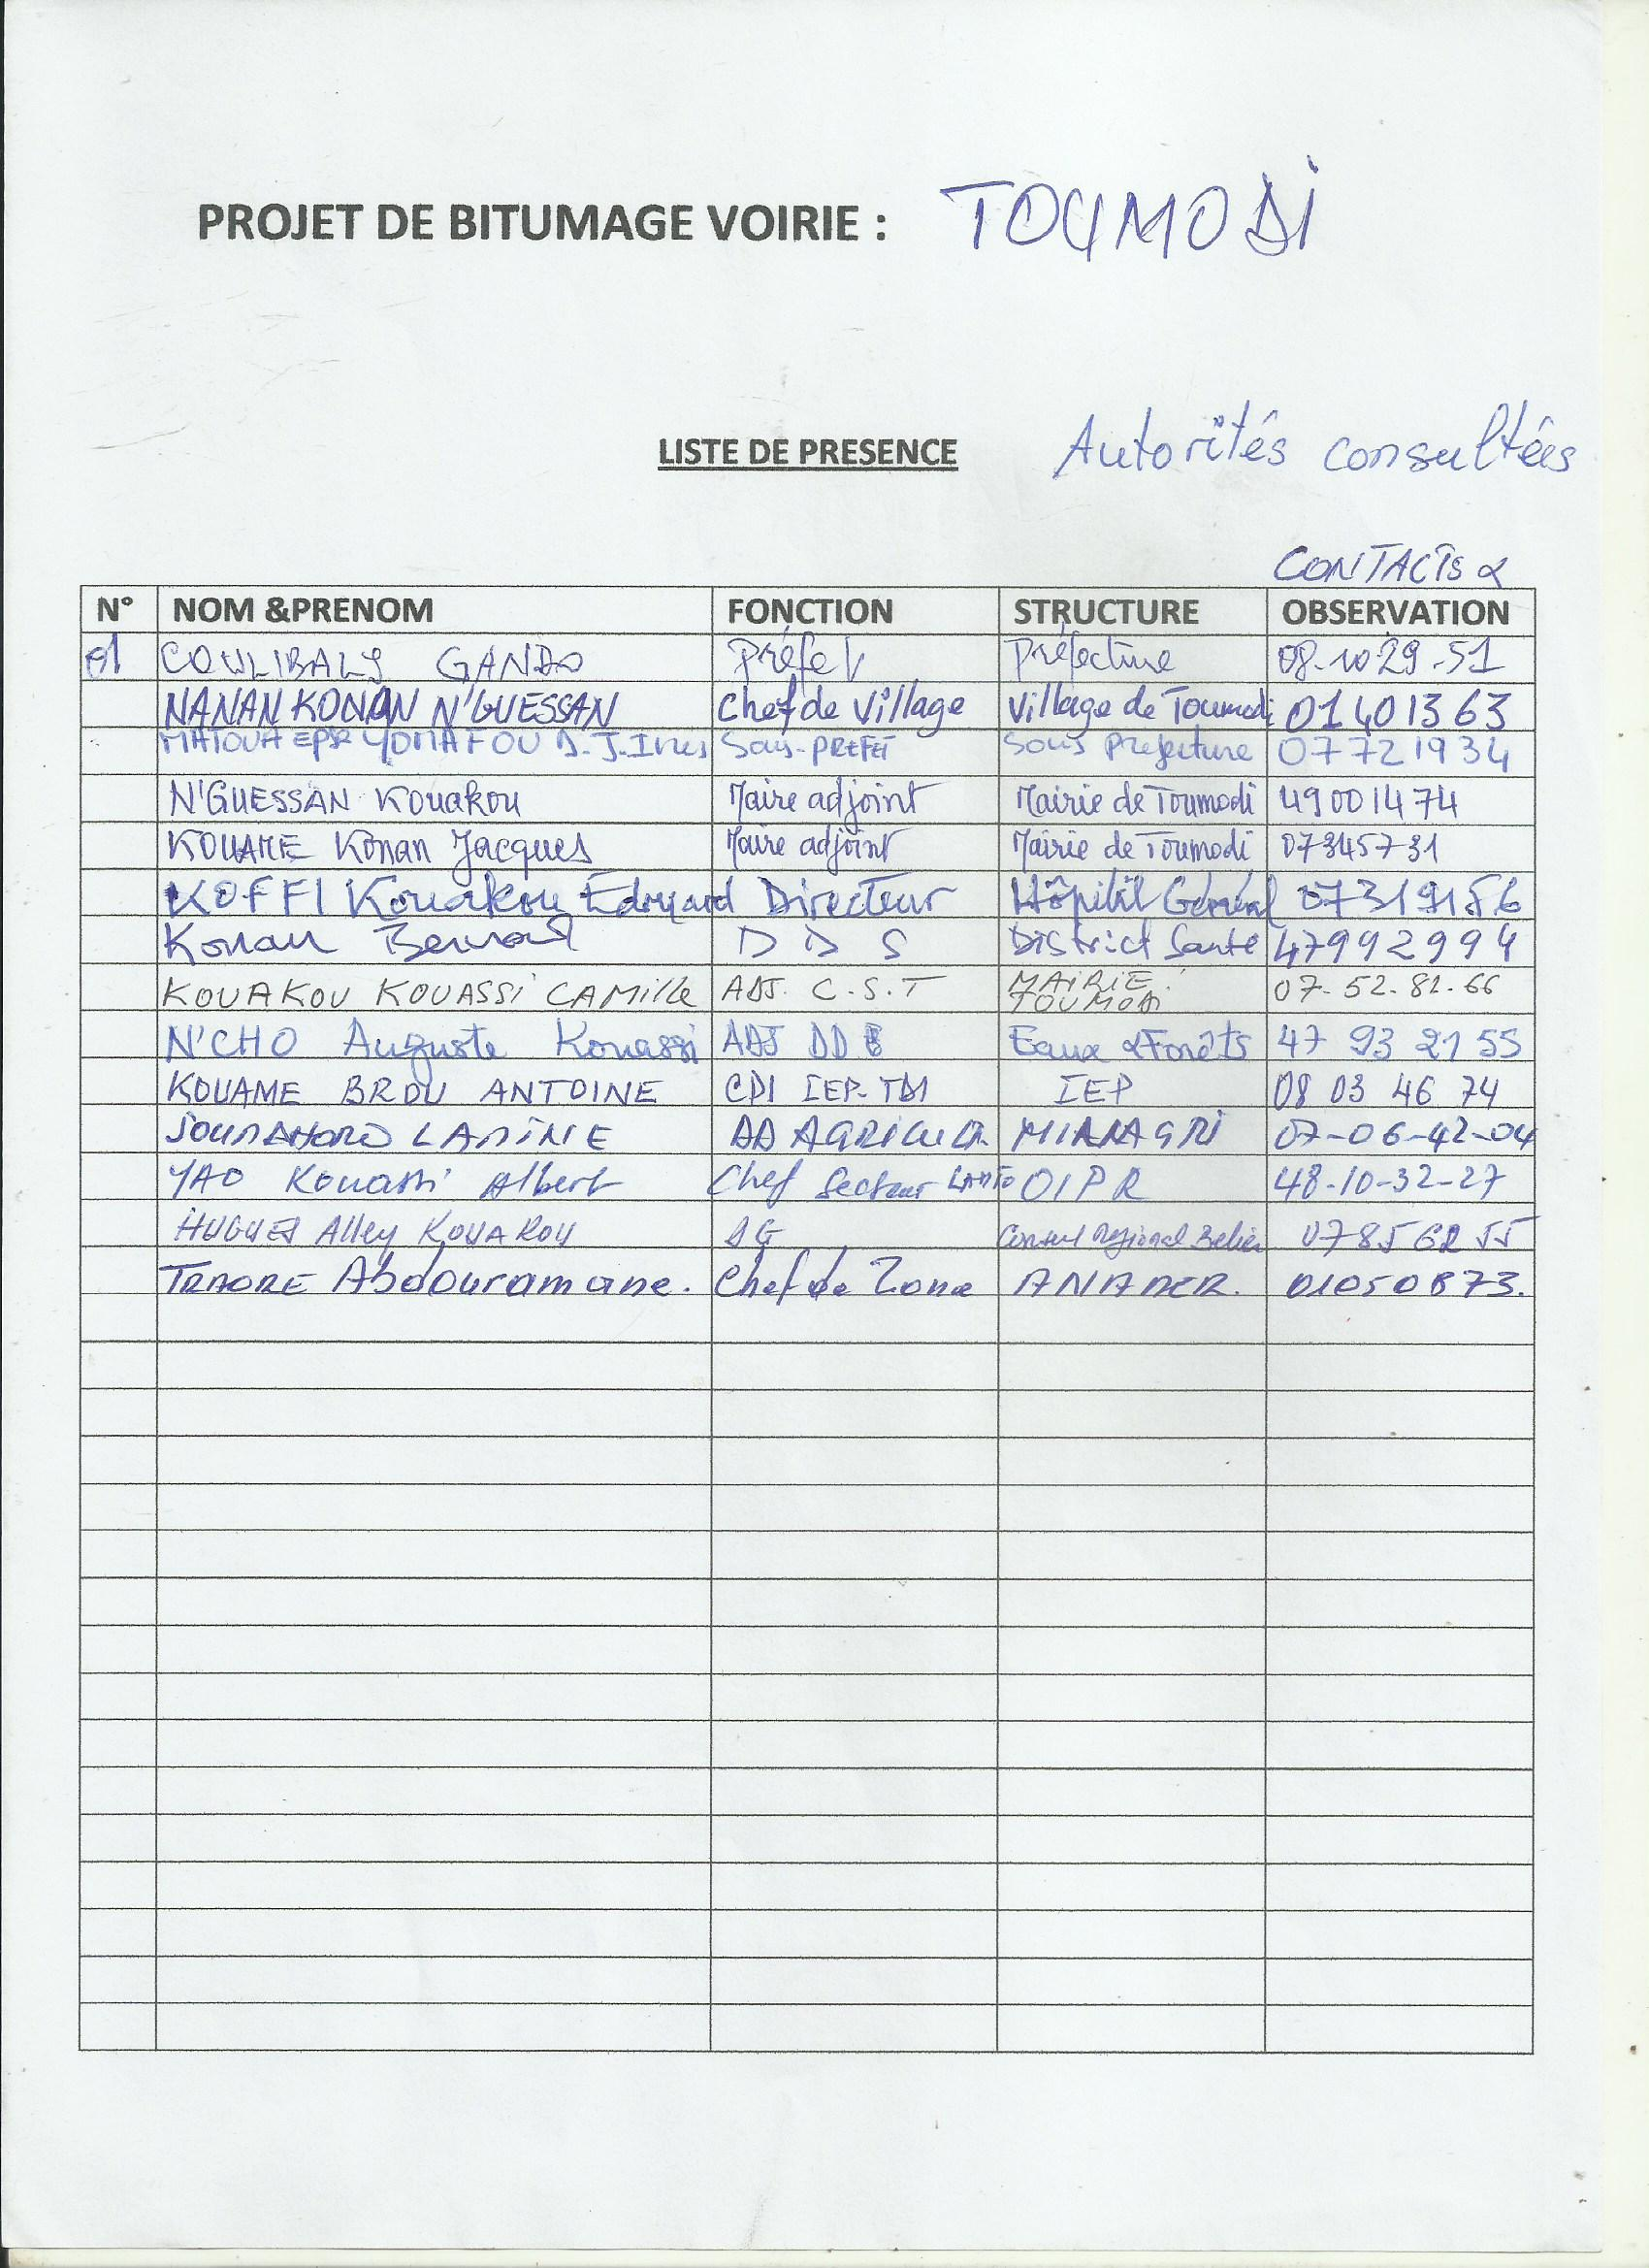 PROJET DE BITUMAGE VOIRIE : TOUMODI
LISTE DE PRESENCE Autorités consultées
CONTACTS &
N° NOM &PRENOM FONCTION STRUCTURE OBSERVATION
01 COULIBALY GANDO Préfet Préfecture 08-10-29-51
NANAN KONAN N'GUESSAN Chef de Village Village de Toumodi 01401363
MATOUA EPSE D. J. Ines Sous-PREFET Sous Prefecture 07721934
N'GUESSAN Kouakou Maire adjoint Mairie de Toumodi 49001474
KOUAME Konan Jacques Maire adjoint Mairie de Toumodi 07345731
KOFFI Kouakou Edouard Directeur Hôpital Général
Konan Bernard D D S District Santé 47992994
KOUAKOU KOUASSI CAMille ADJ. C.S.T MAIRIE TOUMODI 07-52-82-66
N'CHO Auguste Kouassi ADJ DD Eaux & Forêts 47 93 21 55
KOUAME BROU ANTOINE CPI IEP-TDI IEP 08 03 46 74
LAMINE DD MINAGRI 07-06-42-04
YAO Kouassi Albert Chef Secteur LAMTO OIPR 48-10-32-27
HUGUES Alley KOUAKOU DG Conseil Régional Belier 07856255
TRAORE Abdouramane. Chef de Zone ANADER. 01050873.